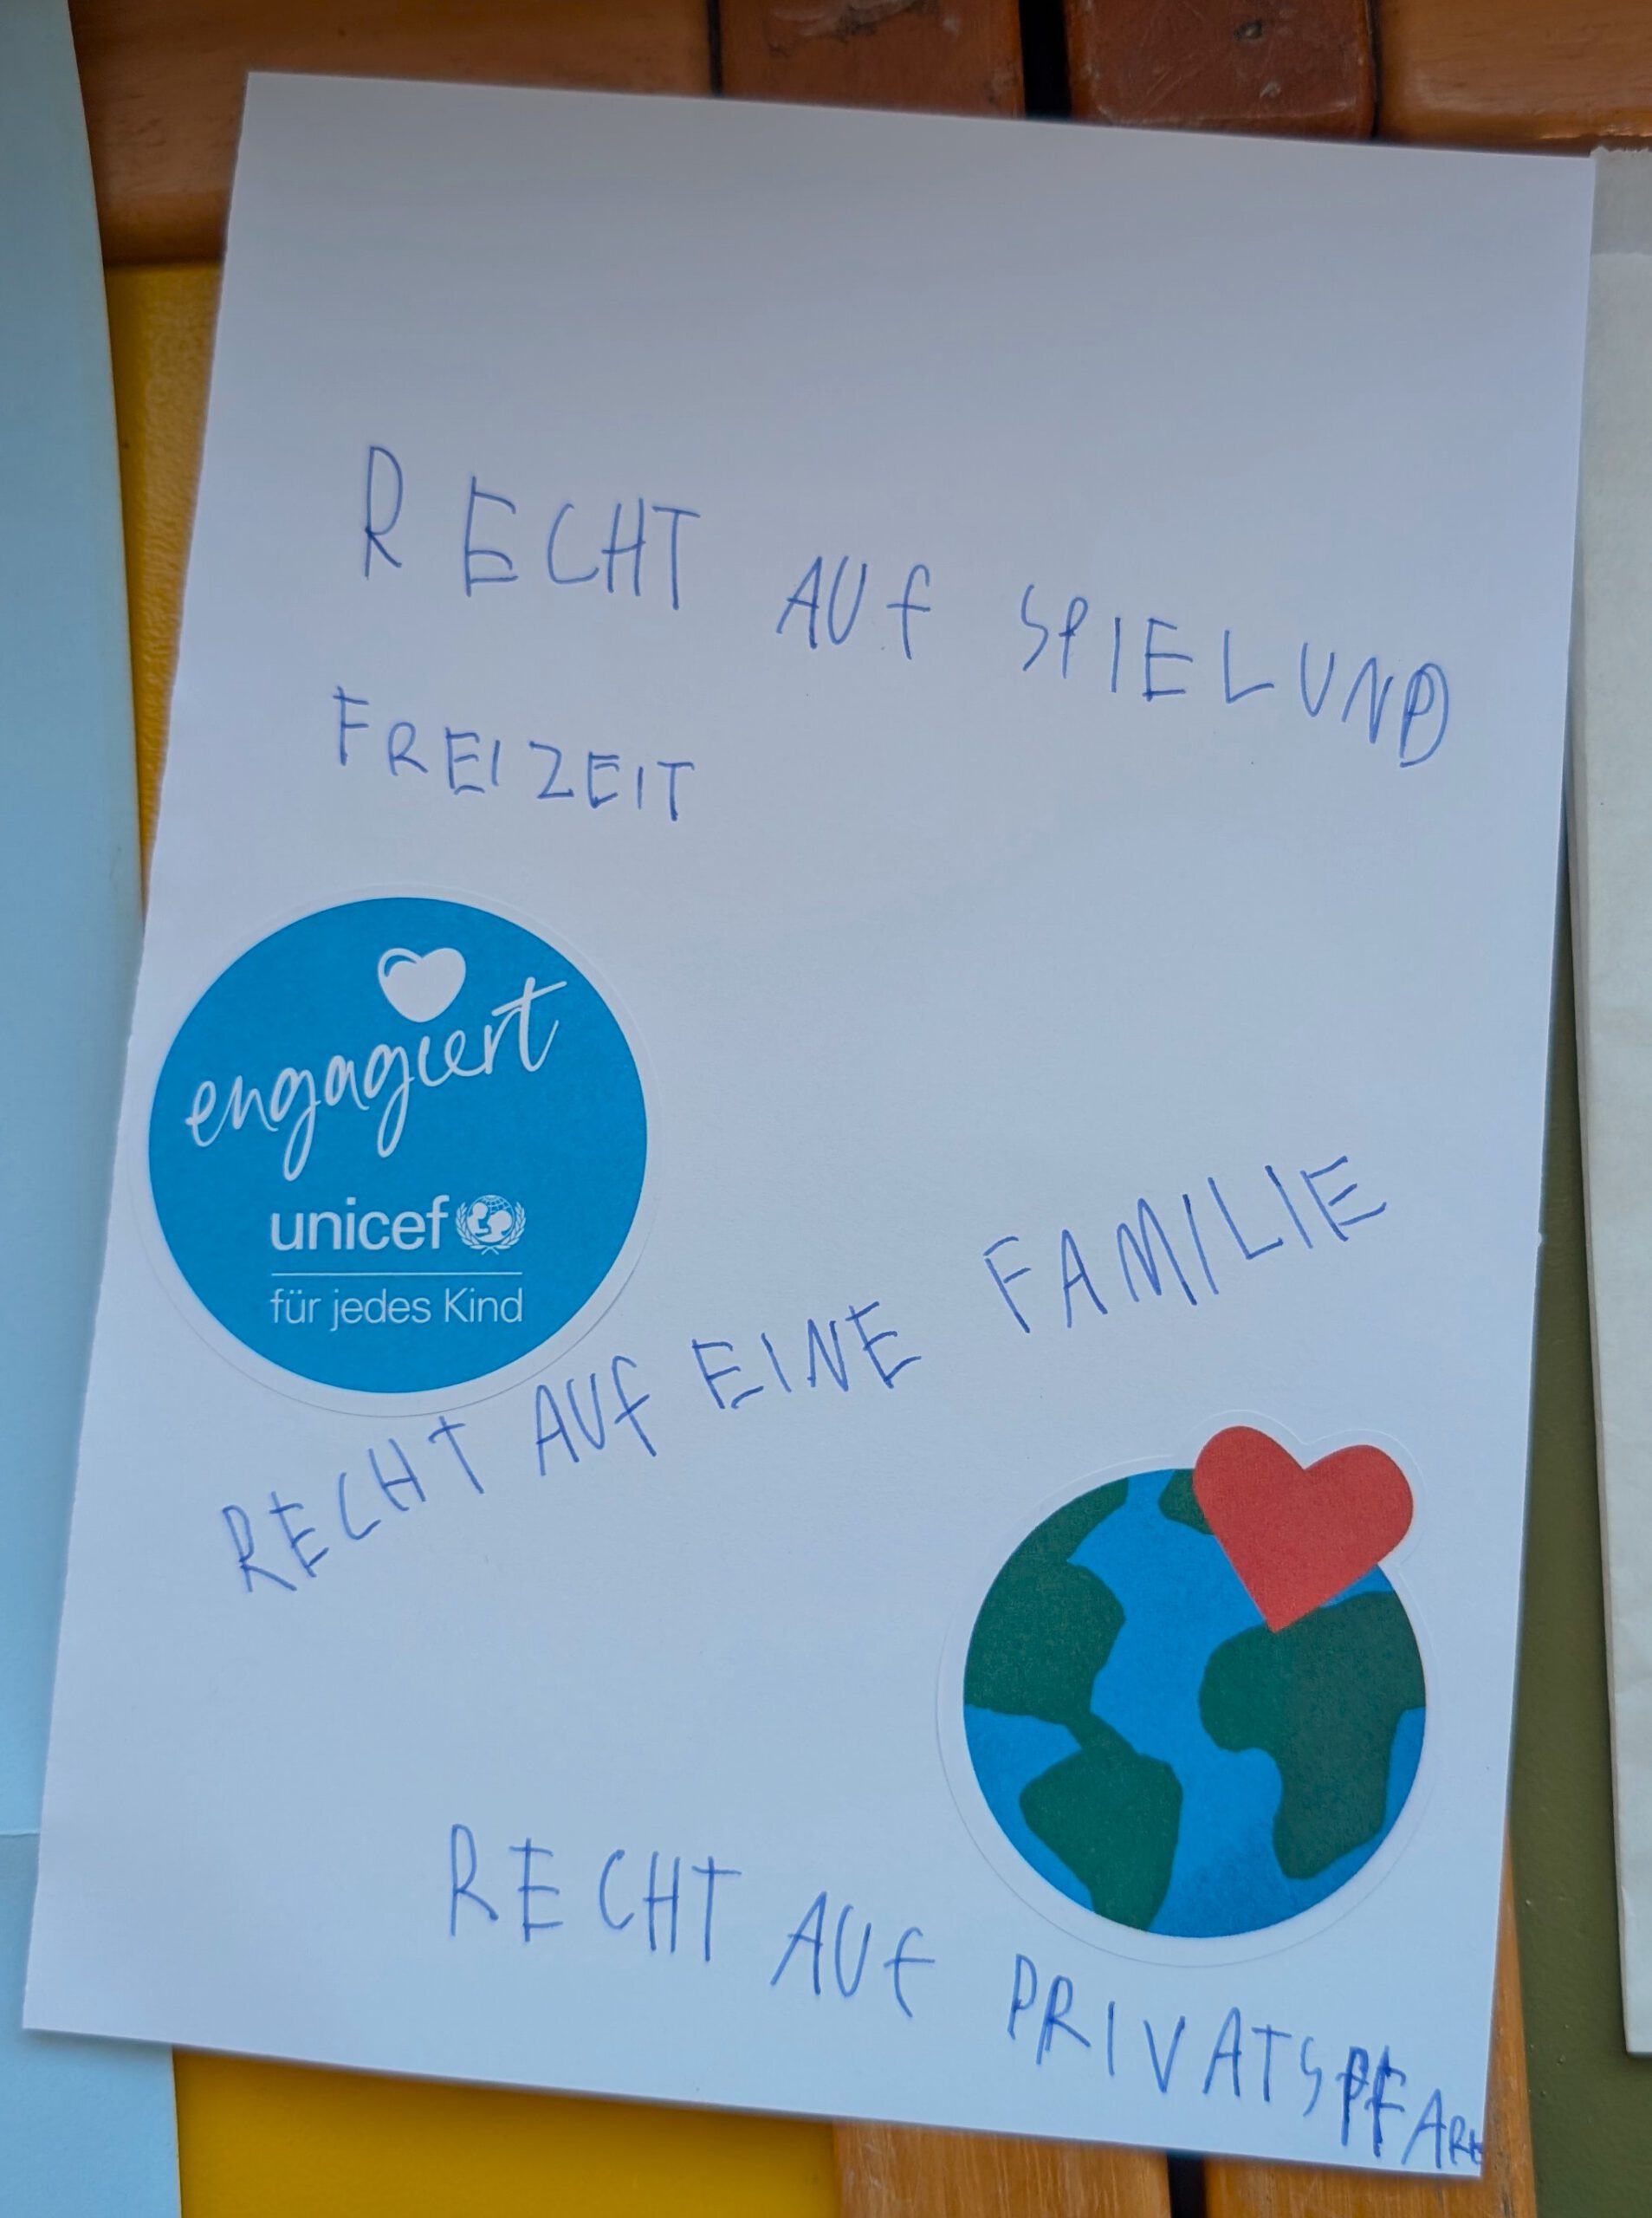 RECHT AUf SPIELUND
FREIZEIT
engagiert
unicef
für jedes Kind
RECHT AUf EINE FAMILIE
RECHT AUf PRIVATSPFÄRE